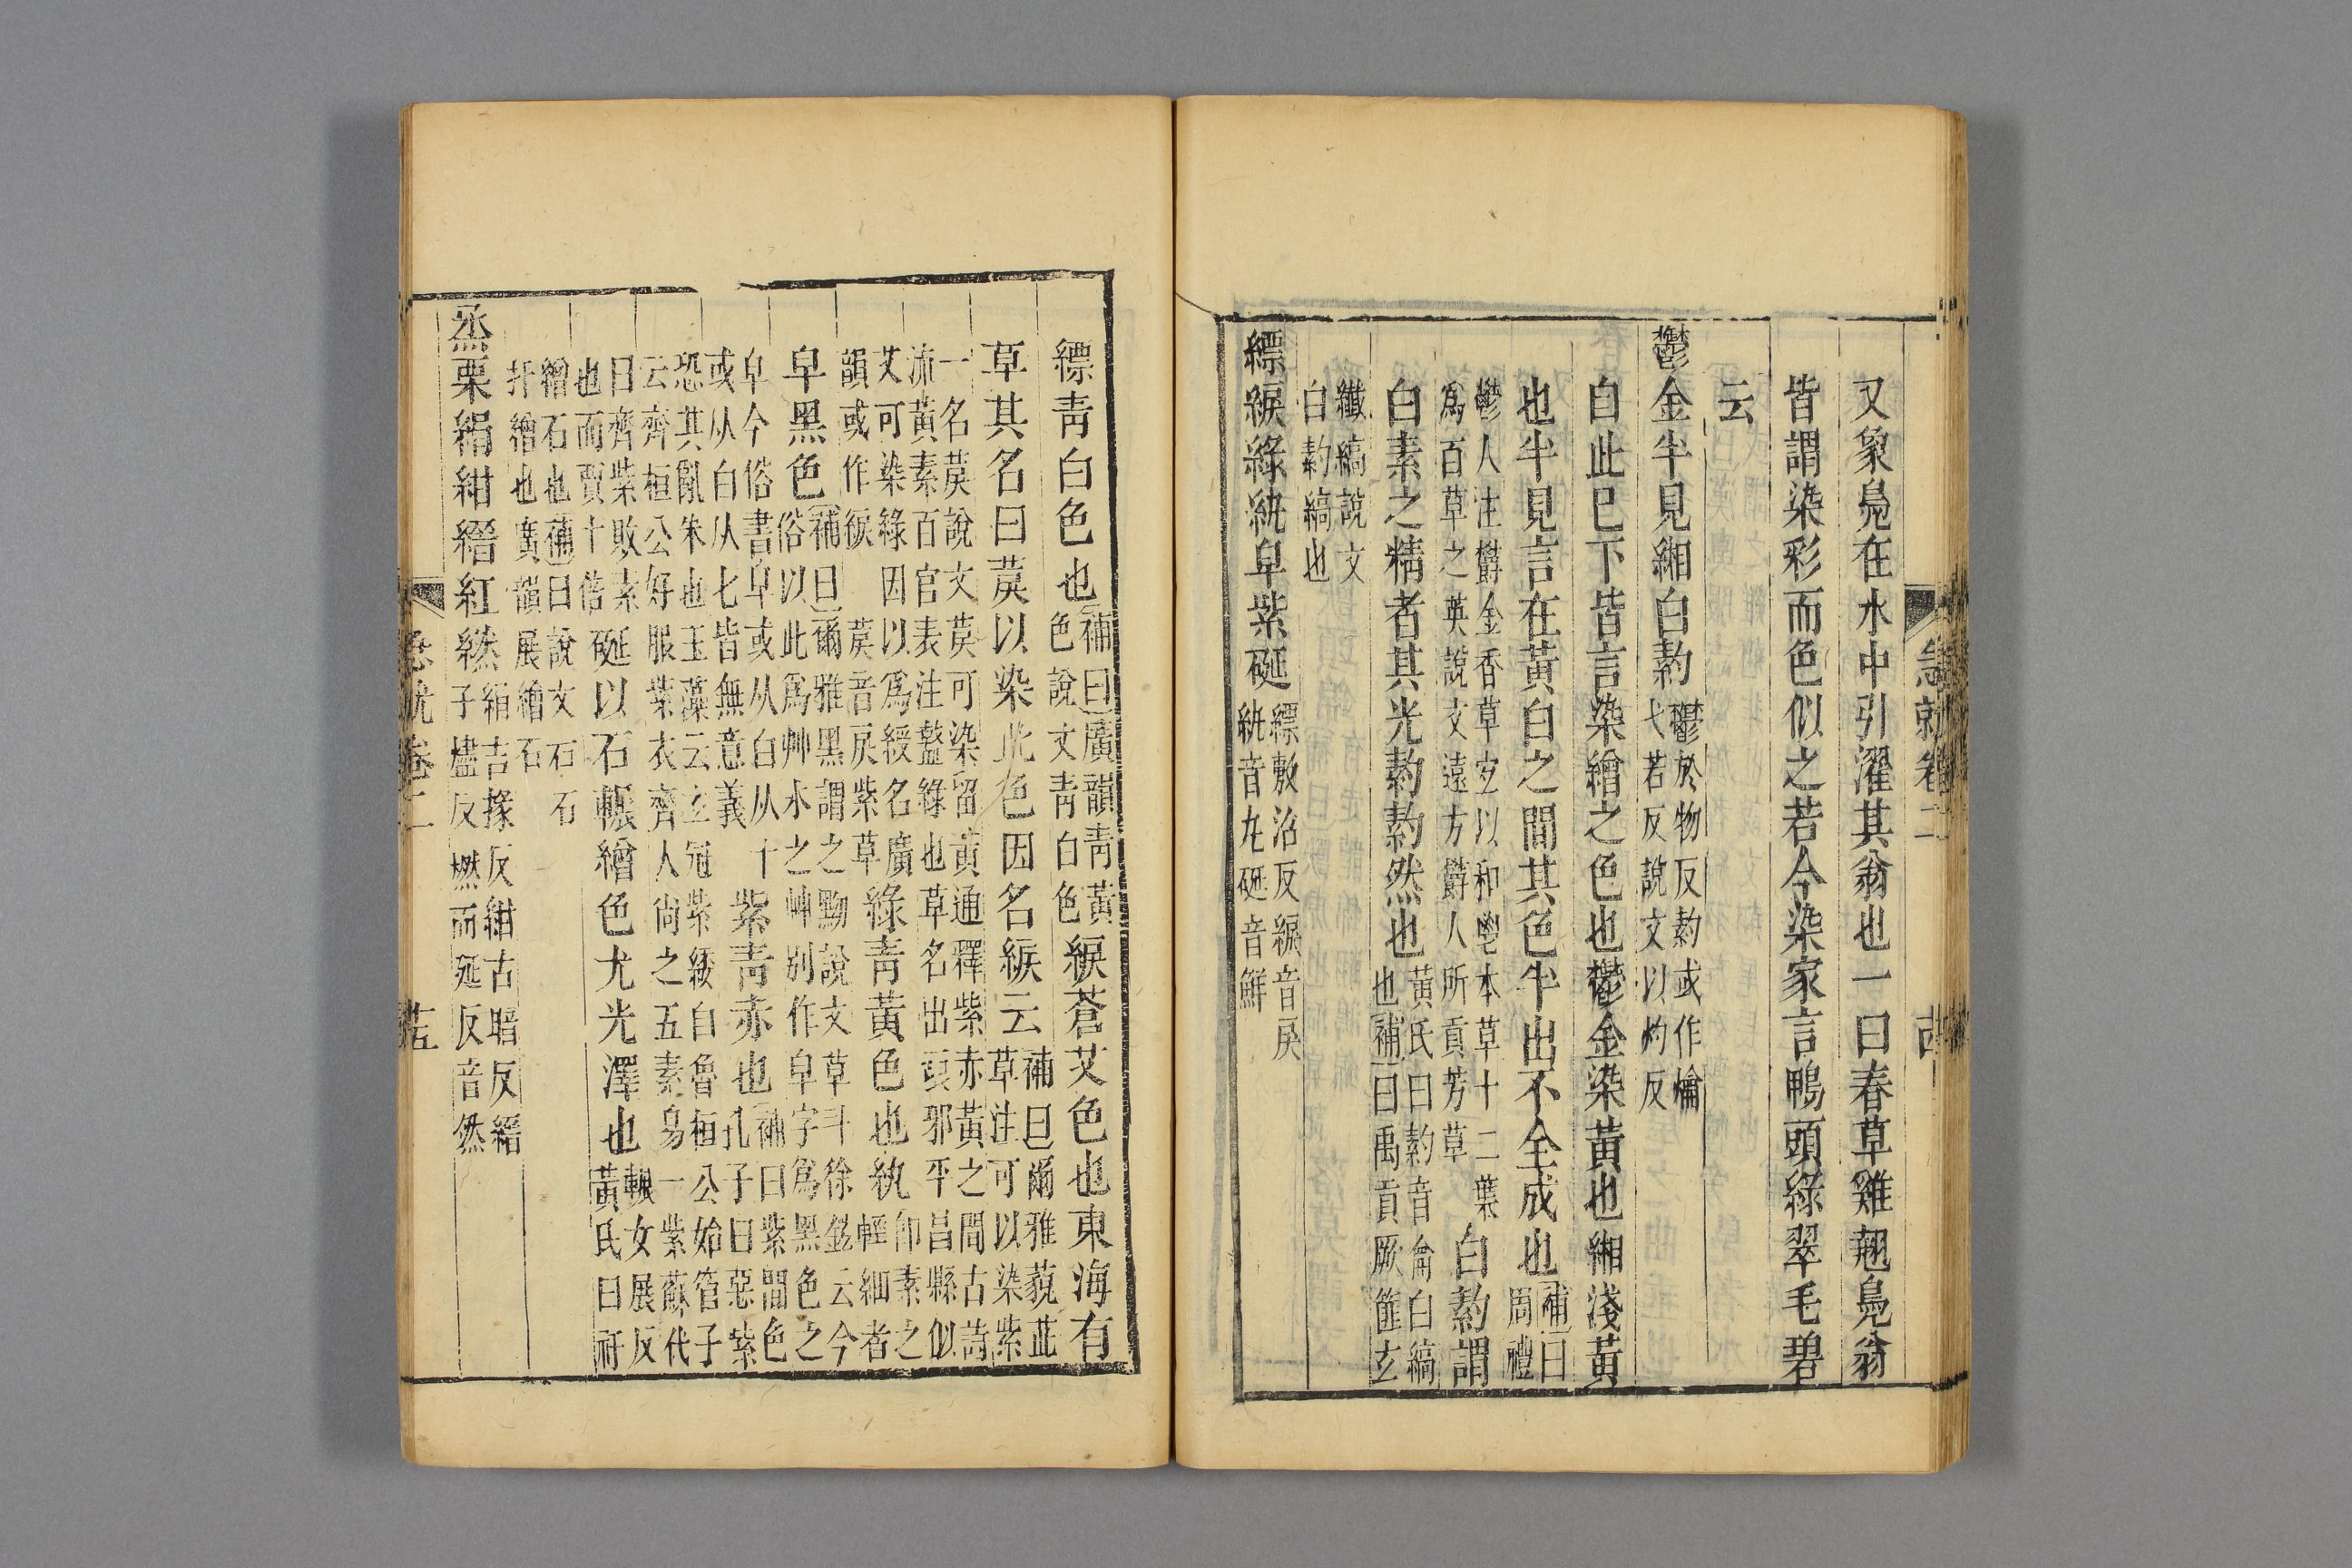 急就卷二
又象鳧在水中引濯其翁也一曰春草雞翹鳧翁
皆謂染彩而色似之若今染家言鴨頭綠翠毛碧
云
鬱金半見緗白䊵鬱於物反䊵或作爚
弋若反說文以灼反
自此已下皆言染繒之色也鬱金染黃也緗淺黃
也半見言在黃白之間其色半出不全成也補曰
周禮
鬱人注鬱金香草宜以和鬯本草十二葉
爲百草之英說文遠方鬱人所貢芳草
白䊵謂
白素之精者其光䊵䊵然也黃氏曰䊵音龠白縞
也補曰禹貢厥篚玄
纖縞說文
白䊵縞也
縹綟綠紈皁紫硟縹敷沼反綟音戾
紈音丸硟音鮮
縹青白色也補曰廣韻青黃
色說文青白色
綟蒼艾色也東海有
草其名曰莀以染此色因名綟云補曰爾雅藐茈
草注可以染紫
一名莀說文莀可染留黃通釋紫赤黃之間古詩
流黃素百官表注盭綠也草名出琅邪平昌縣似
艾可染綠因以爲綬名廣
韻或作綟 莀音戾紫草
綠青黃色也紈卽素之
輕細者
皁黑色補曰爾雅黑謂之黝說文草斗徐鉉云今
俗以此爲艸木之艸別作皁字爲黑色之
皁今俗書皁或从白从十
或从白从七皆無意義
紫青赤也補曰紫間色
孔子曰惡紫
恐其亂朱也玉藻云玄冠紫緌自魯桓公始管子
云齊桓公好服紫衣齊人尚之五素易一紫蘇代
曰齊紫敗素
也而賈十倍
硟以石輾繒色尤光澤也輾女展反
黃氏曰硟
繒石也補曰說文石
扞繒也廣韻展繒石石
烝栗絹紺縉紅繎絹吉掾反紺古暗反縉
子燼反燃而延反音然
卷二